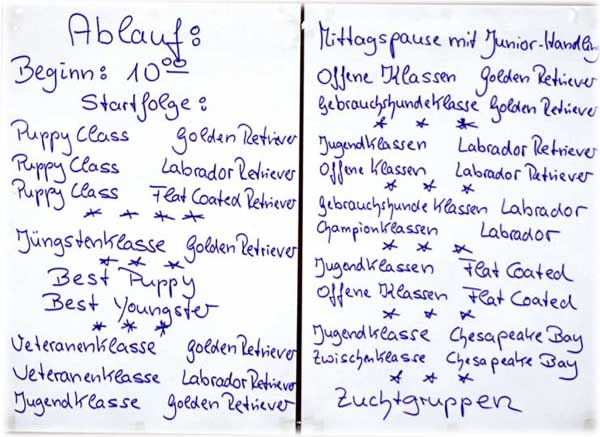 Ablauf:
Beginn: 10⁰⁰
Startfolge:
Puppy Class Golden Retriever
Puppy Class Labrador Retriever
Puppy Class Flat Coated Retriever
* * * *
Jüngstenklasse Golden Retriever
* * *
Best Puppy
Best Youngster
* * *
Veteranenklasse golden Retriever
Veteranenklasse Labrador Retriever
Jugendklasse Golden Retriever
Mittagspause mit Junior-Handling
Offene Klassen Golden Retriever
Gebrauchshundeklasse Golden Retriever
* * *
Jugendklassen Labrador Retriever
Offene Klassen Labrador Retriever
* * *
Gebrauchshunde Klassen Labrador
Championklassen Labrador
* * *
Jugendklassen Flat Coated
Offene Klassen Flat Coated
* * *
Jugendklasse Chesapeake Bay
Zwischenklasse Chesapeake Bay
* * *
Zuchtgruppen